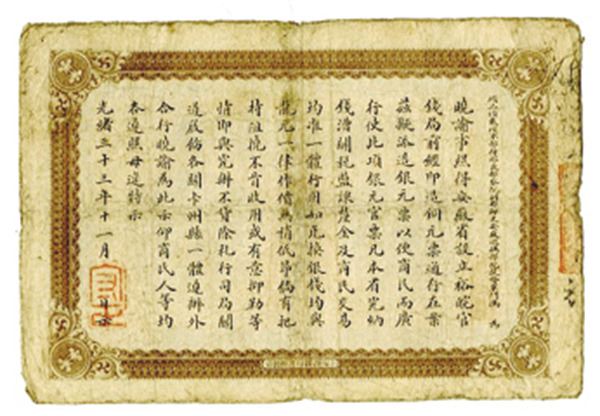 馮 為
曉諭事照得安徽省設立裕皖官
錢局前經印造銅元票通行在案
茲擬添造銀元票以便商民而廣
行使此項銀元官票凡本省完納
錢漕關稅鹽課釐金及商民交易
均准一體行用如兌換銀錢均與
龍元一律作價無稍低昂倘有把
持阻撓不肯收用或有意抑勒等
情即與究辦不貸除札行司局關
道飭各關卡州縣一體遵辦外
合行曉諭為此示仰商民人等均
各遵照毋違特示
光緒三十三年十一月 日示